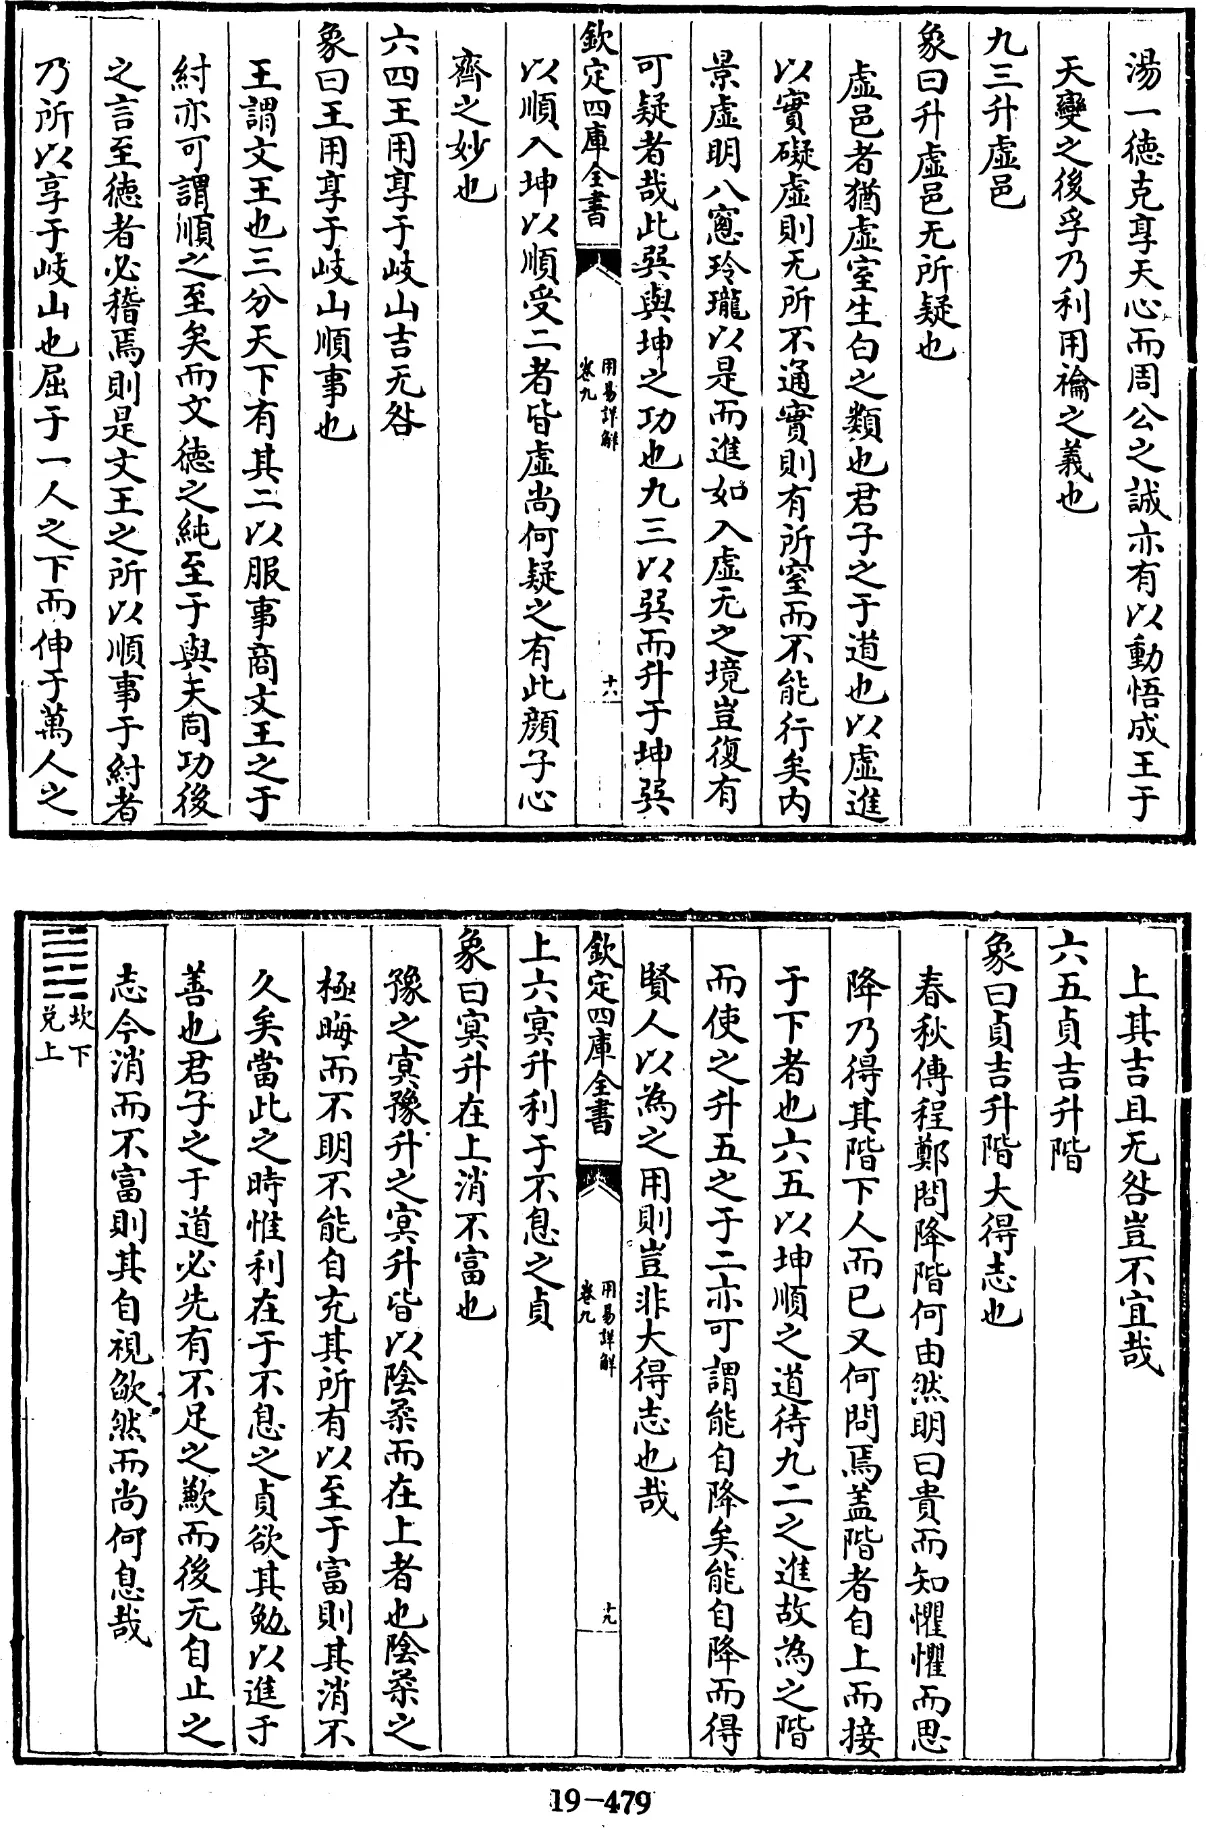 湯一德克享天心而周公之誠亦有以動悟成王于
天變之後孚乃利用禴之義也
九三升虛邑
象曰升虛邑无所疑也
虛邑者猶虛室生白之類也君子之于道也以虛進
以實礙虛則无所不通實則有所窒而不能行矣内
景虛明八窻玲瓏以是而進如入虛无之境豈復有
可疑者哉此巽與坤之功也九三以巽而升于坤巽
欽定四庫全書
用易詳解
卷九
十八
以順入坤以順受二者皆虛尚何疑之有此顔子心
齋之妙也
六四王用享于岐山吉无咎
象曰王用享于岐山順事也
王謂文王也三分天下有其二以服事商文王之于
紂亦可謂順之至矣而文德之純至于與天同功後
之言至德者必稽焉則是文王之所以順事于紂者
乃所以享于岐山也屈于一人之下而伸于萬人之
上其吉且无咎豈不宜哉
六五貞吉升階
象曰貞吉升階大得志也
春秋傳程鄭問降階何由然明曰貴而知懼懼而思
降乃得其階下人而已又何問焉蓋階者自上而接
于下者也六五以坤順之道待九二之進故為之階
而使之升五之于二亦可謂能自降矣能自降而得
賢人以為之用則豈非大得志也哉
欽定四庫全書
用易詳解
卷九
十九
上六冥升利于不息之貞
象曰冥升在上消不富也
豫之冥豫升之冥升皆以陰柔而在上者也陰柔之
極晦而不明不能自充其所有以至于富則其消不
久矣當此之時惟利在于不息之貞欲其勉以進于
善也君子之于道必先有不足之歉而後无自止之
志今消而不富則其自視欿然而尚何息哉
坎下
兌上
19-479